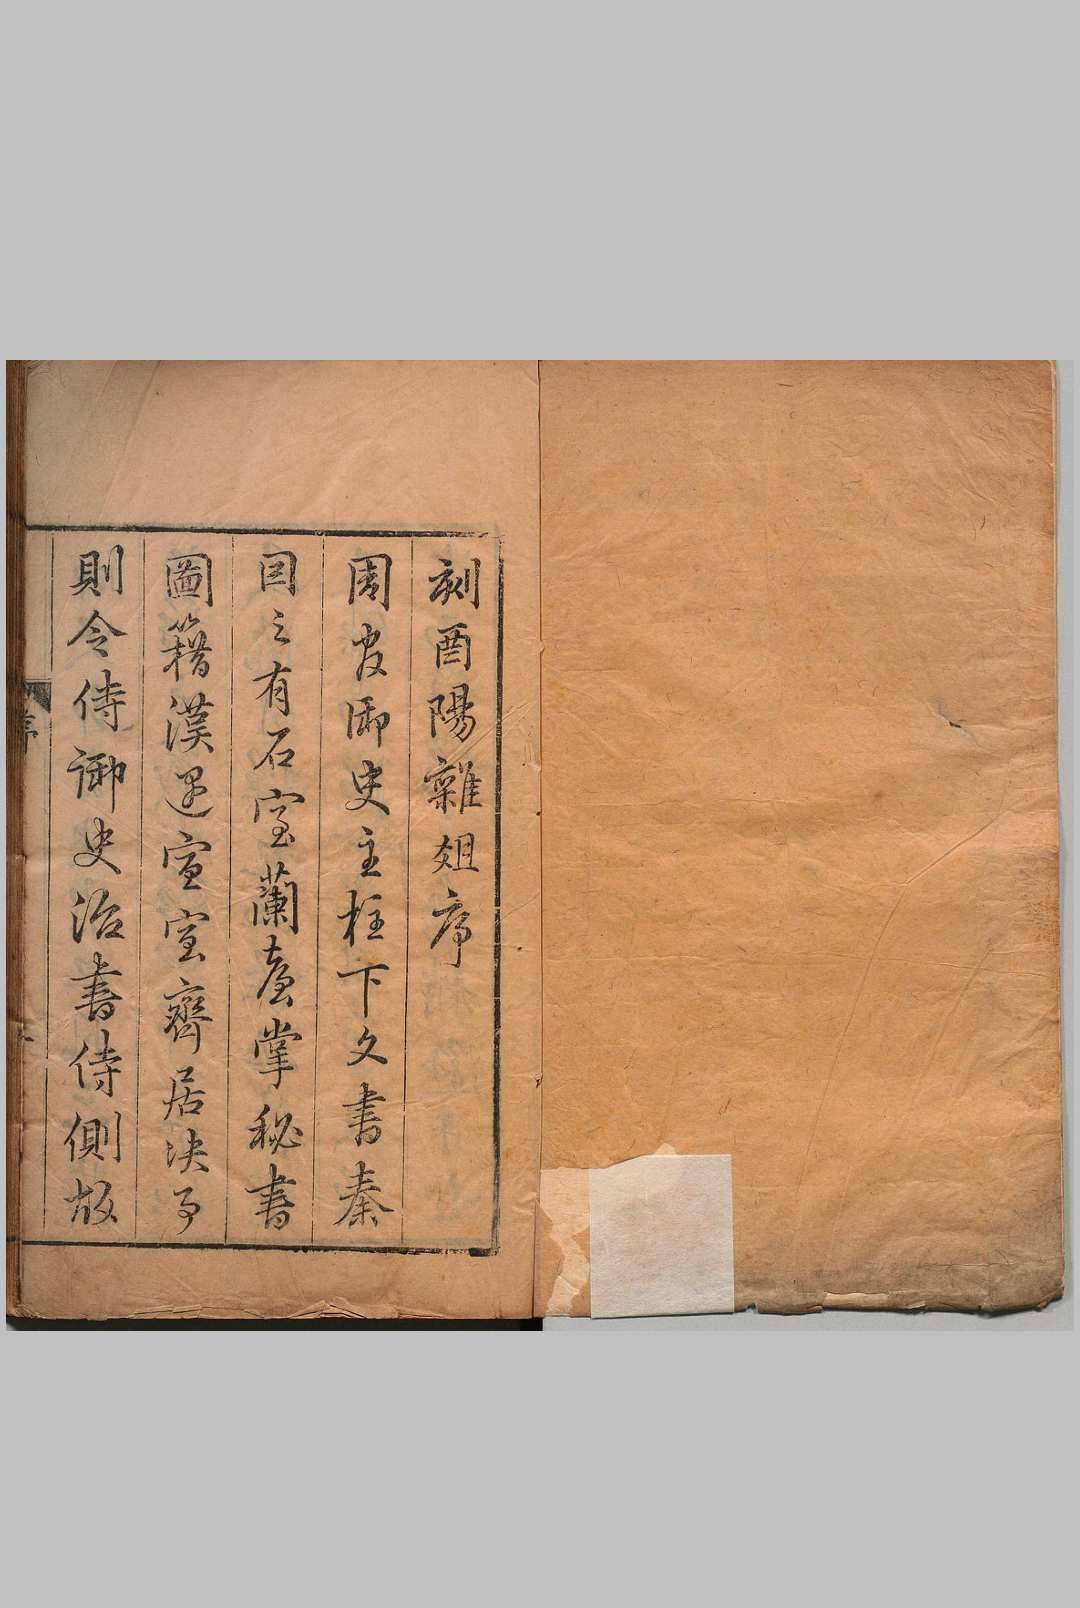 刻酉陽雜爼序
周官御史主柱下文書秦
因之有石室蘭臺掌秘書
圖籍漢宣室齊居决事
則令侍御史治書侍側故
序